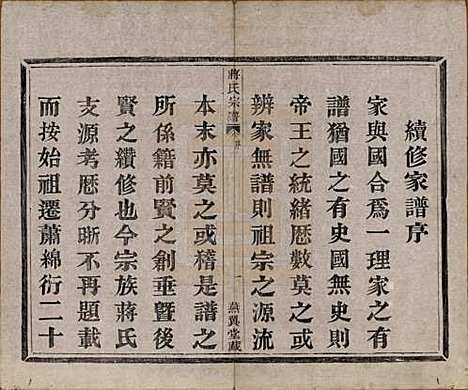 續修家譜序
家與國合爲一理家之有
譜猶國之有史國無史則
帝王之統緒歷數莫之或
辨家無譜則祖宗之源流
蔣氏宗譜
序
一
燕翼堂藏
本末亦莫之或稽是譜之
所係籍前賢之創垂曁後
賢之纘修也今宗族蔣氏
支源考歷分晰不再題載
而按始祖遷蕭綿衍二十